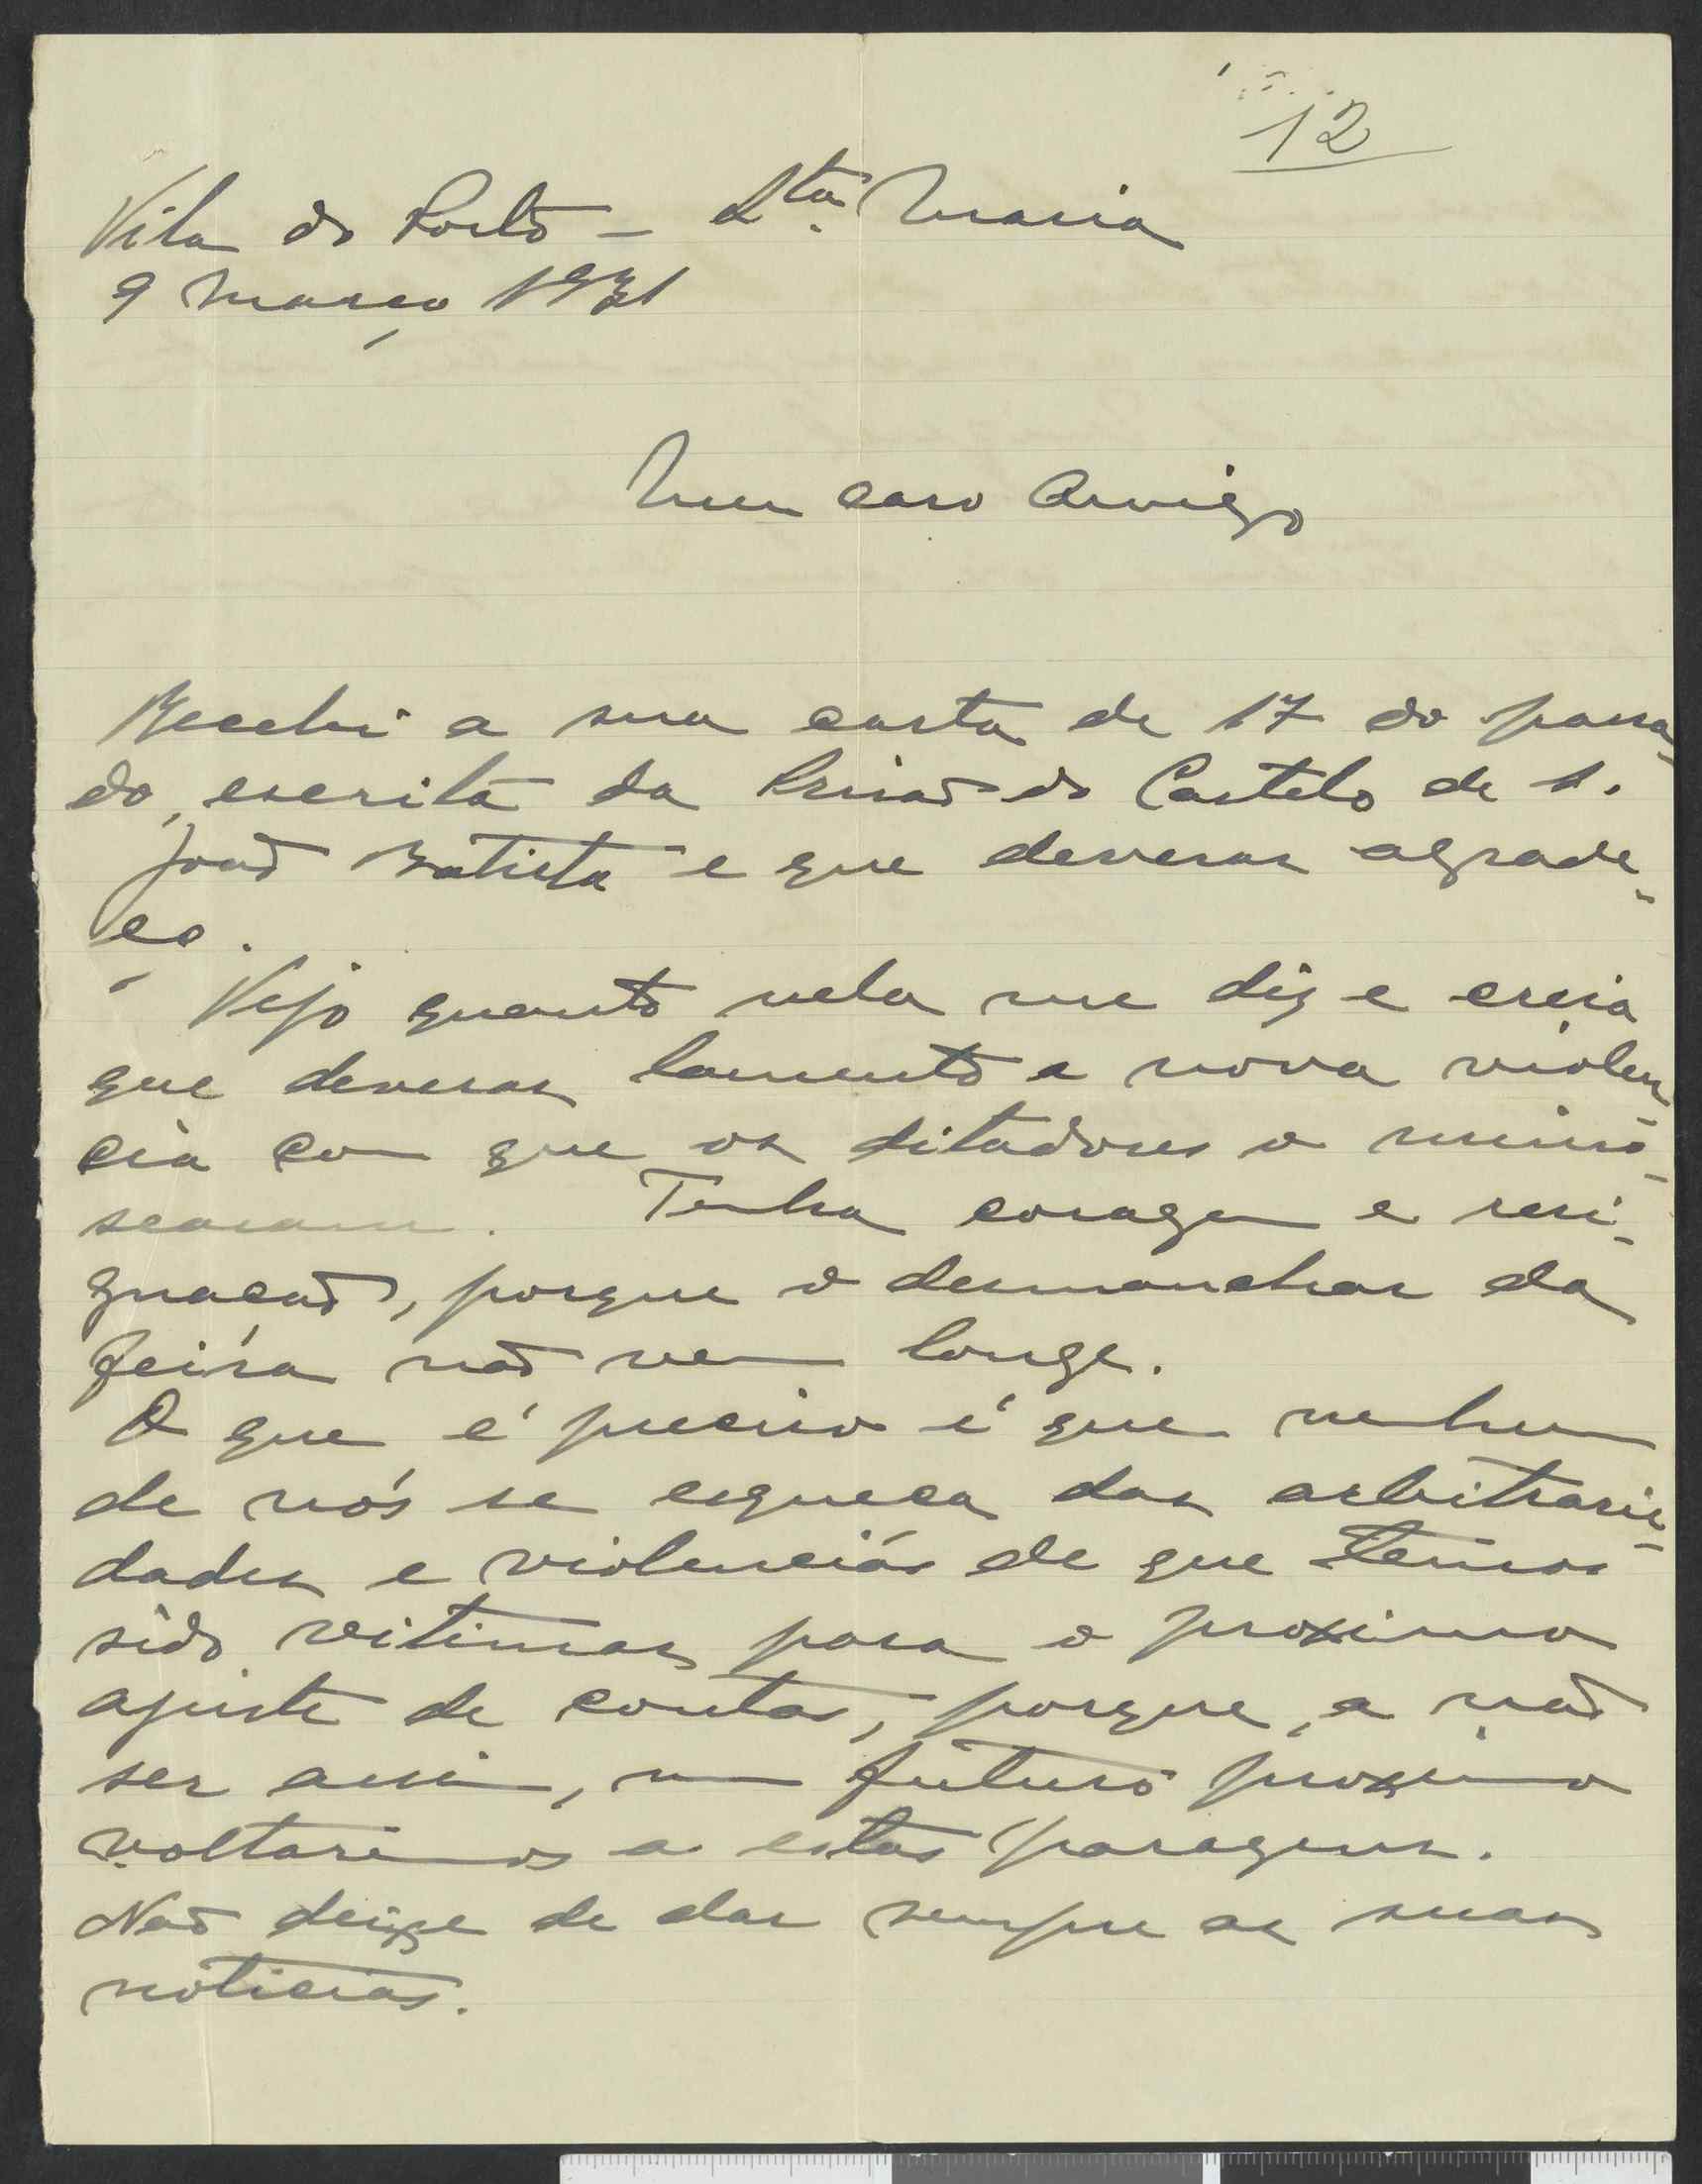 12
Vila do Porto - Sta. Maria
9 Março 1931
Meu caro Amigo
Recebi a sua carta de 17 do passa-
do, escrita da Prisaõ do Castelo de S.
Joaõ Batista e que deveras agrade-
ço.
Vejo quanto nela me diz e creia
que deveras lamento a nova violen-
cia com que os ditadores o mimo-
searam. Tenha coragem e resi-
gnaçaõ, porque o desmanchar da
feira naõ vem longe.
O que é preciso é que nenhum
de nós se esqueça das arbitrarie-
dades e violencias de que temos
sido vitimas para o proximo
ajuste de contas, porque, a naõ
ser assim, num futuro proximo
voltaremos a estas paragens.
Naõ deixe de dar sempre as suas
noticias.